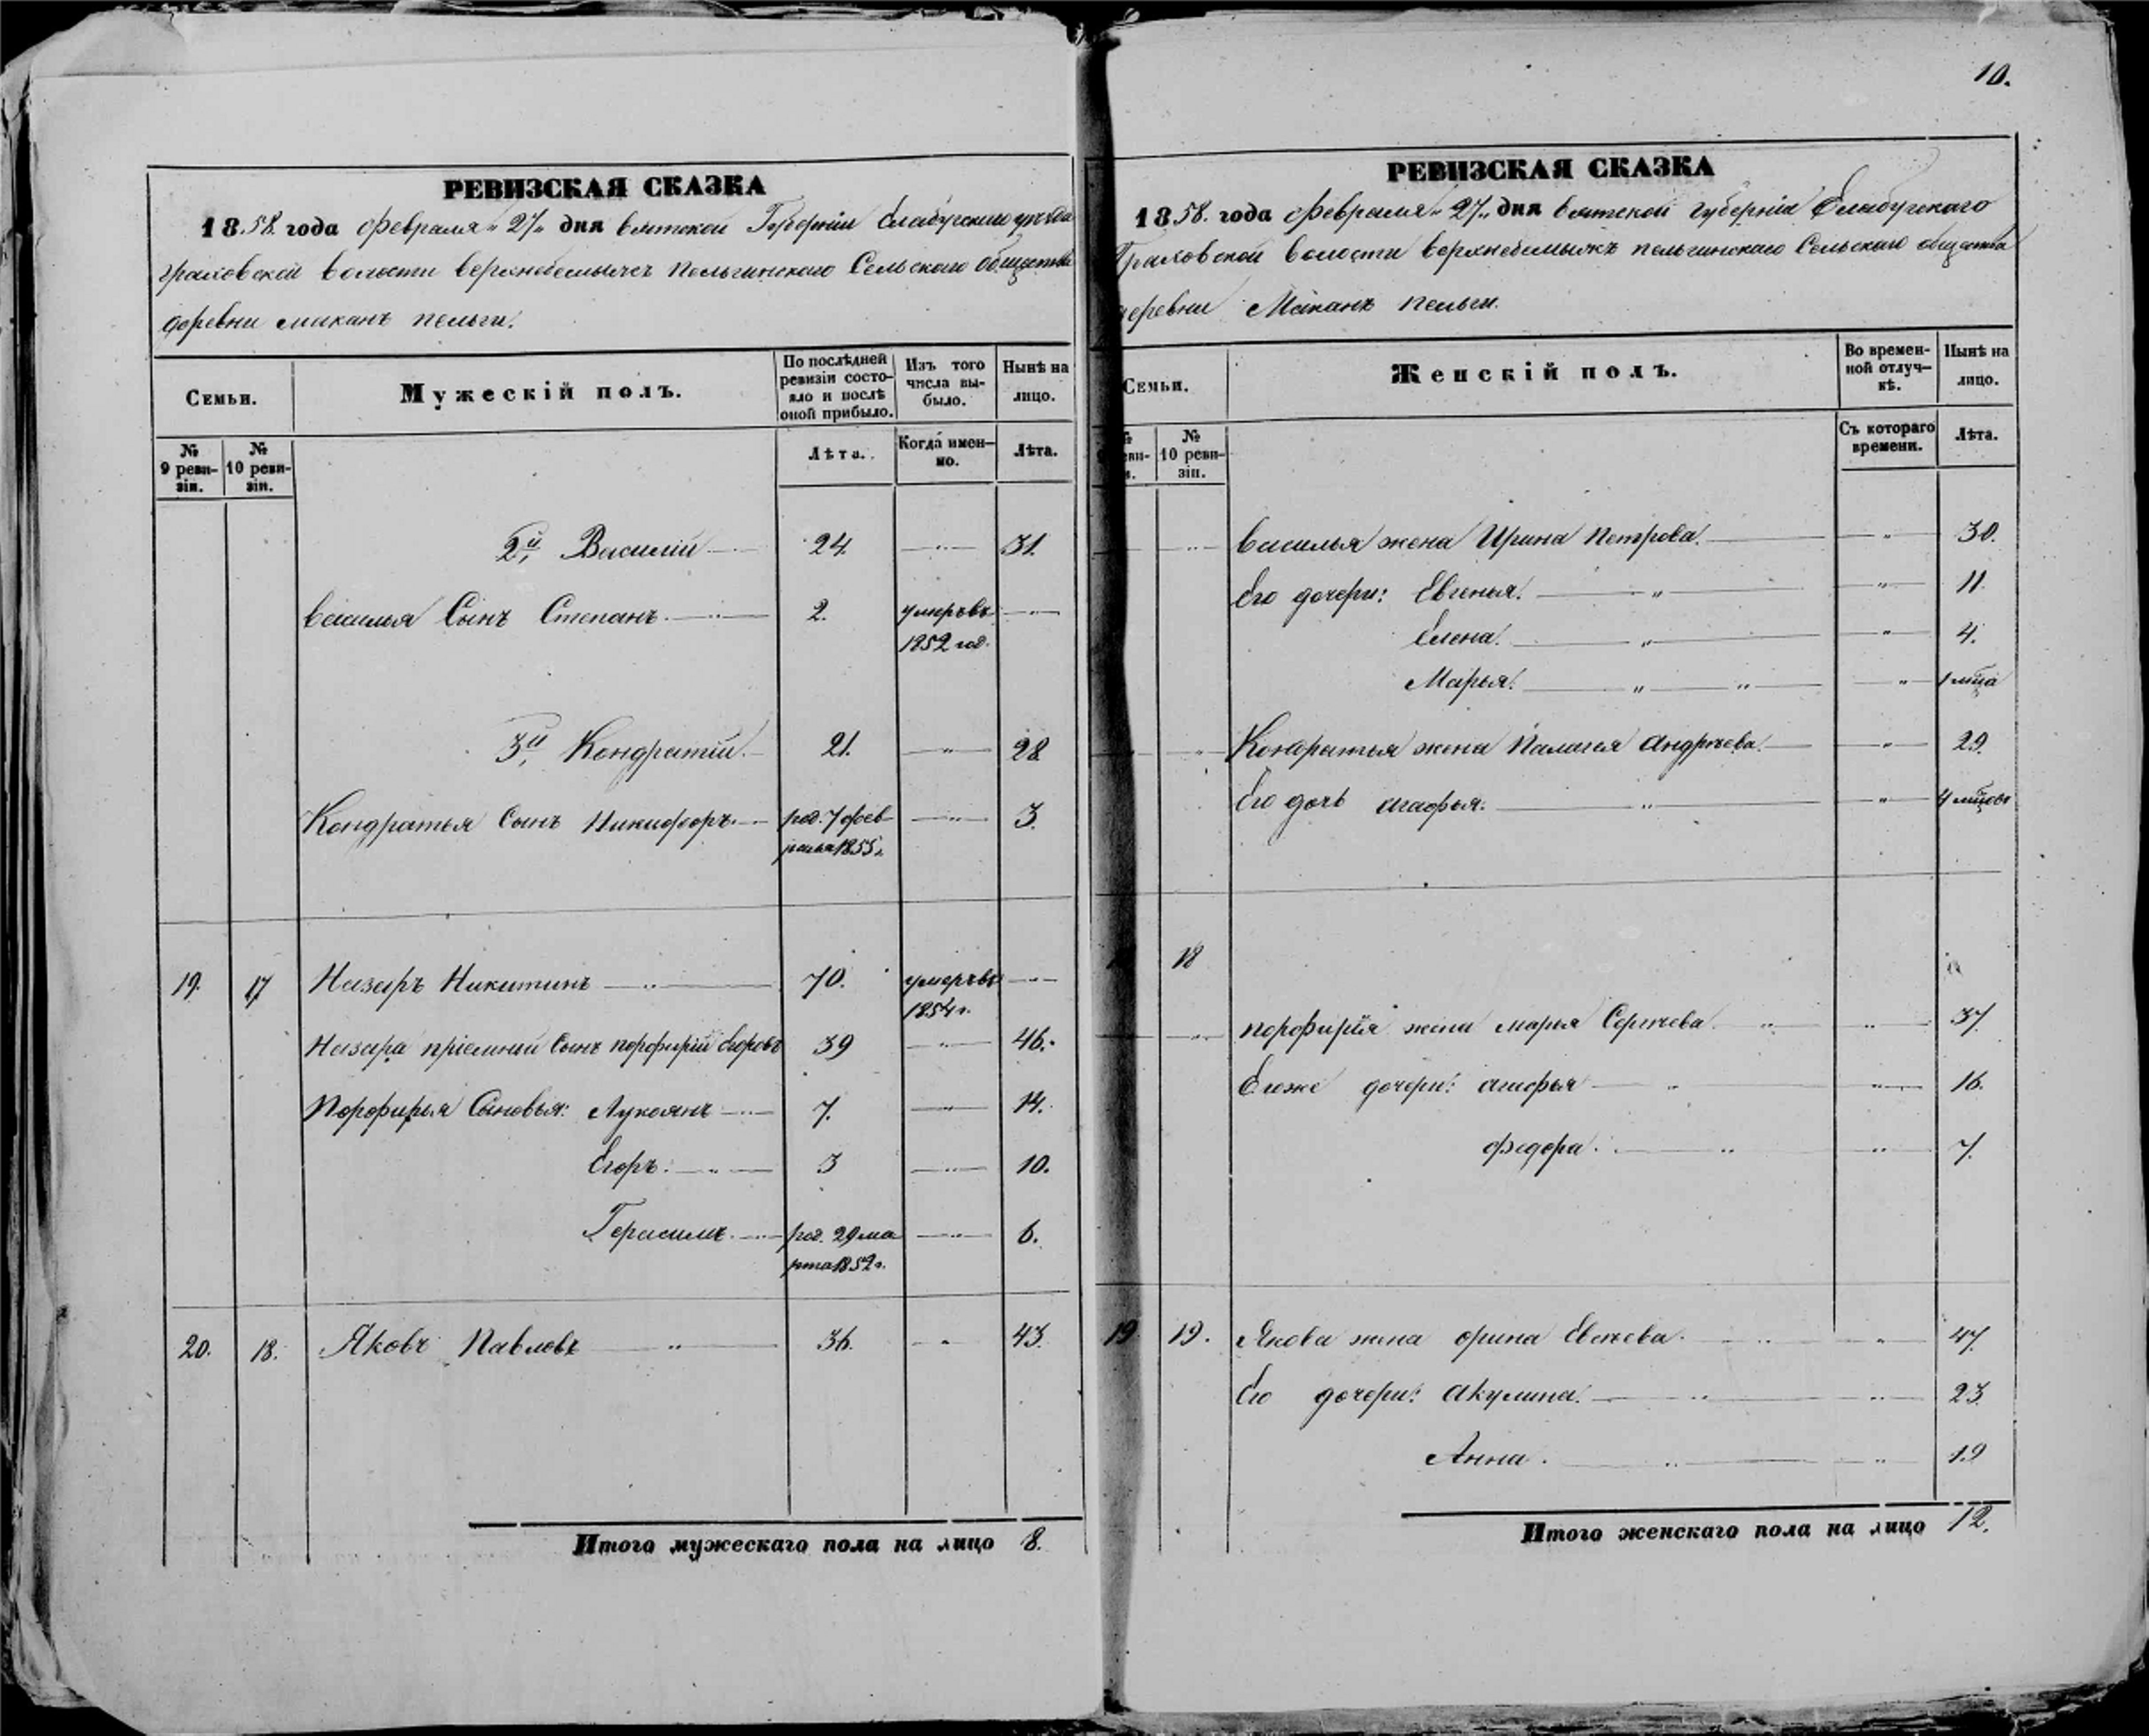 10.
РЕВИЗСКАЯ СКАЗКА
18.58. года Февраля „27„ дня вятской Губерніи Елабугскаго уѣзда
граховской волости верхнебемыжъ Пельгинскаго Сельскаго общества
деревни миканъ пельги.
Семьи.
Мужескій полъ.
По послѣдней ревизіи состояло и послѣ оной прибыло.
Изъ того числа выбыло.
Нынѣ на лицо.
№ 9 ревизіи.
№ 10 ревизіи.
Лѣта.
Когда именно.
Лѣта.
2й Василій 24 31.
василья Сынъ Степанъ 2. умеръ въ
1852 год.
3й Кондратій. 21. 28
Кондратья Сынъ Никифоръ. род. 7 фев- 3.
раля 1855 г.
19. 17 Назаръ Никитинъ 70. умеръ въ
1854 г.
Назара пріемный Сынъ порфирій Егоровъ 39 46.
Порфирья Сыновья: Лукоянъ 7. 14.
Егоръ. 3 10.
Герасимъ. род. 29 ма 6.
рта 1852 г.
20. 18. Яковъ Павловъ 36. 43.
Итого мужескаго пола на лицо 8.
РЕВИЗСКАЯ СКАЗКА
18.58. года Февраля „27„ дня вятской губерніи Елабугскаго
Граховской волости верхнебемыжъ пельгинскаго Сельскаго общества
деревни Миканъ пельги.
Семьи.
Женскій полъ.
Во временной отлучкѣ.
Нынѣ на лицо.
№ 10 ревизіи.
Съ котораго времени.
Лѣта.
Василья жена Ирина Петрова. 30.
Его дочери: Евгенья. 11.
Елена. 4.
Марья. 1 мца
Кондратья жена Палагея Андрѣева. 29.
Его дочь агафья. 4 мцовъ
18
порфирія жена марья Сергѣева. 37.
Егоже дочери: агафья 16.
федора. 7.
19 19. Якова жена орина Евсѣева. 47.
Его дочери: акулина. 23.
Анна. 19
Итого женскаго пола на лицо 12.